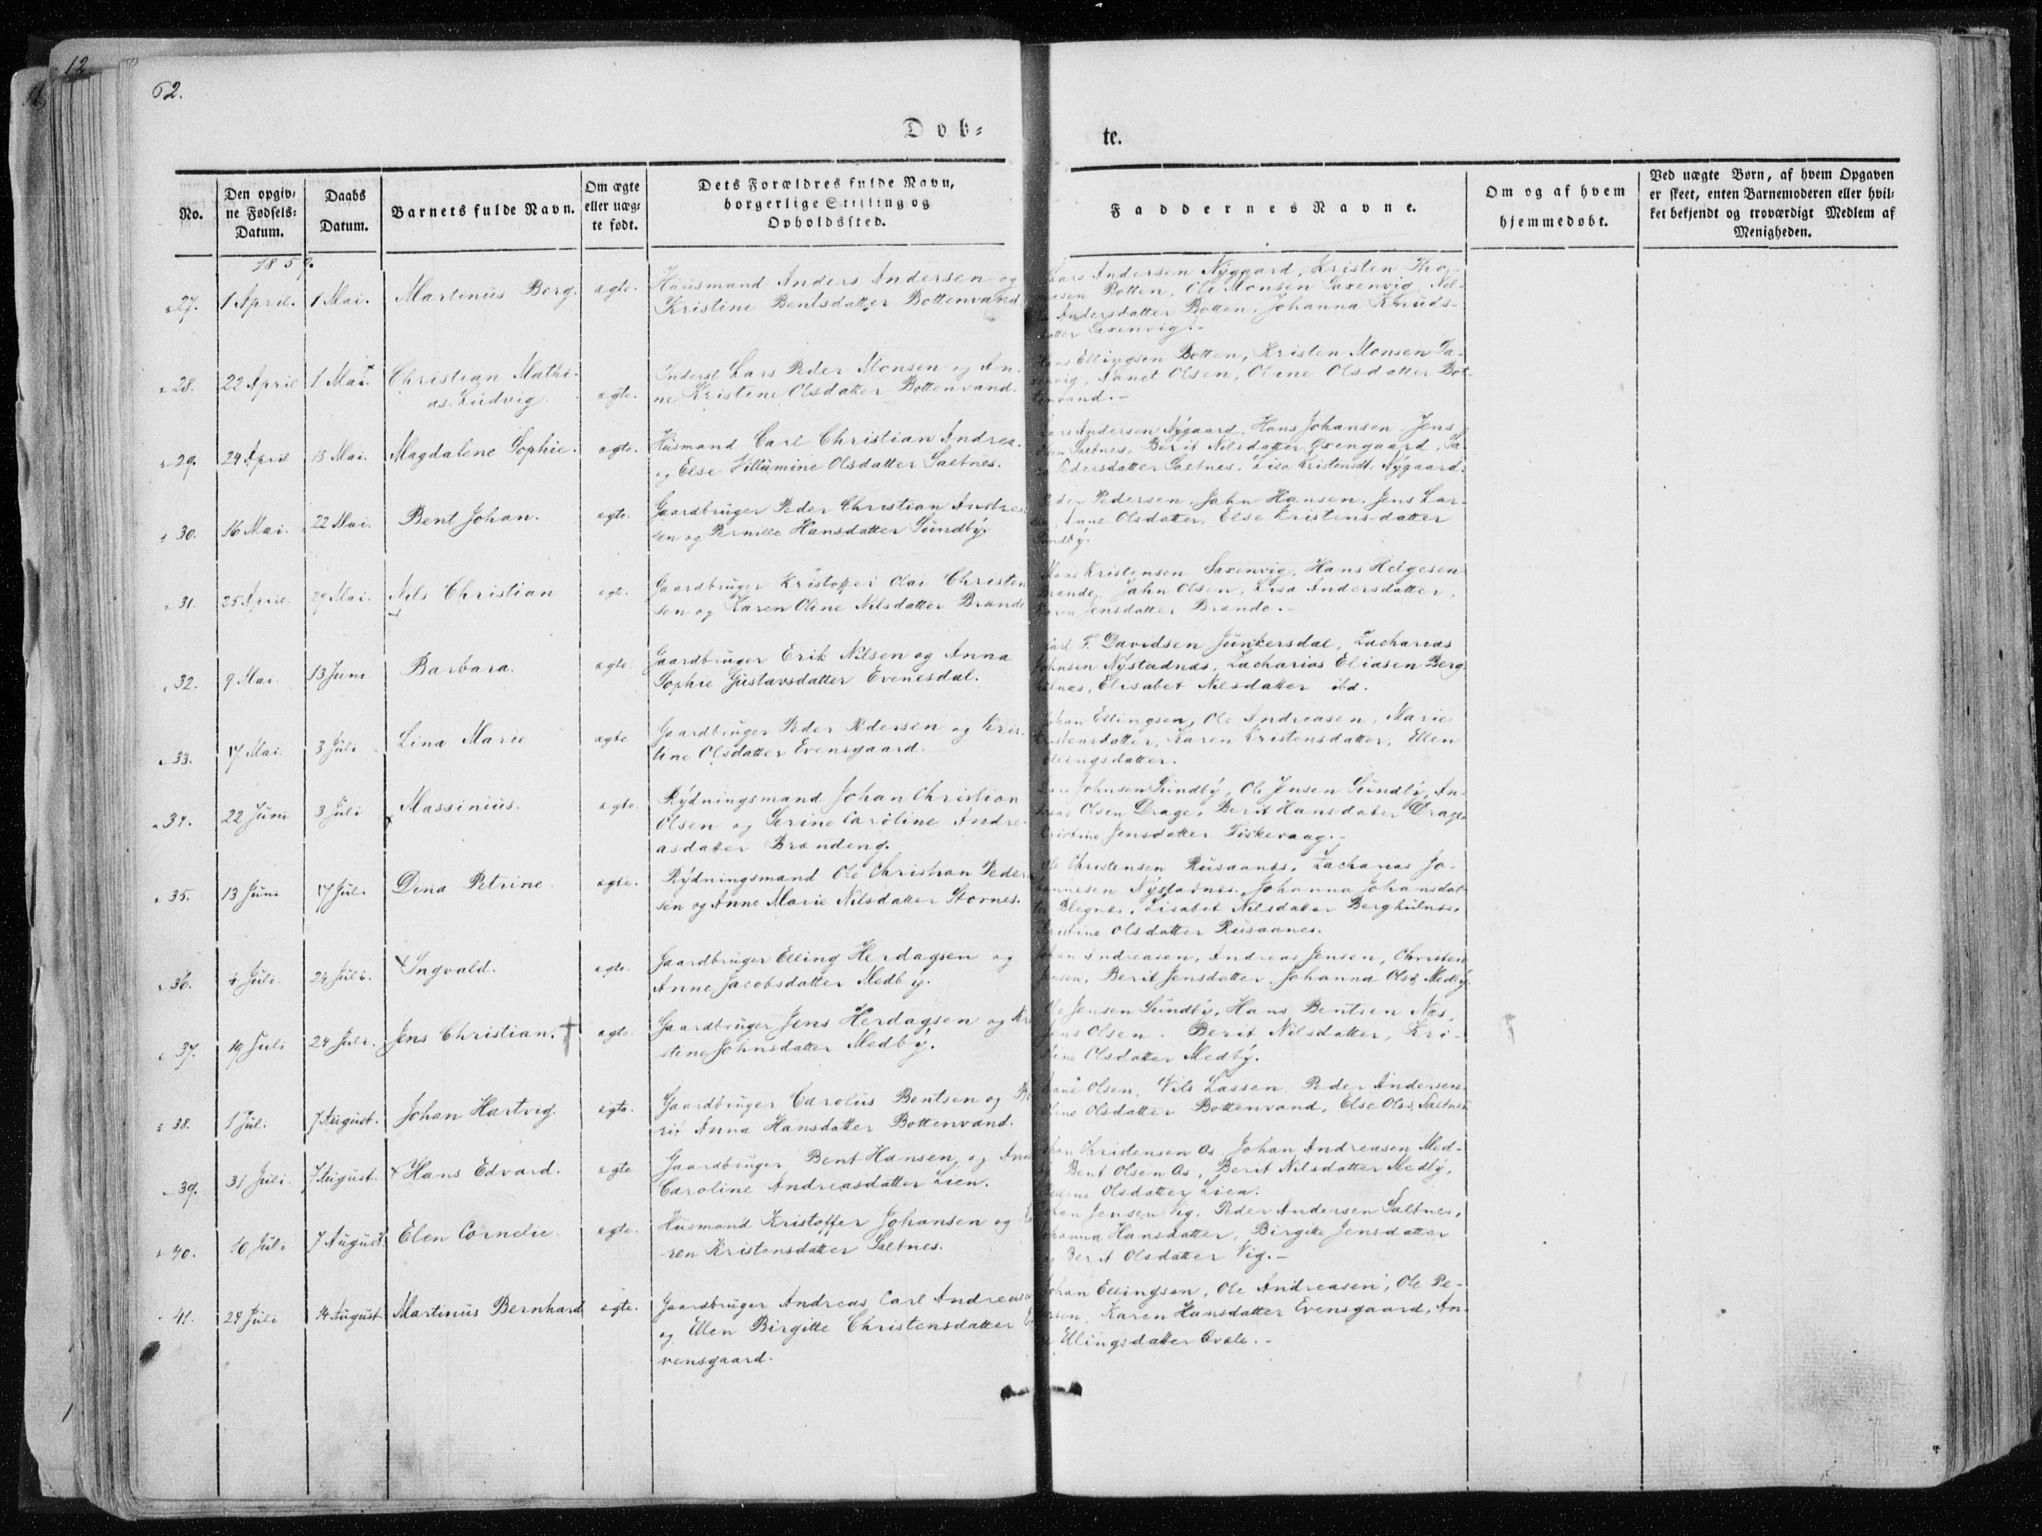 12
62.
Dob-
te.
No.
Den opgiv-
ne Fødsels-
Datum.
Daabs
Datum.
Barnets fulde Navn.
Om ægte
eller uæg-
te født.
Dets Forældres fulde Navn,
borgerlige Stilling og
Opholdssted.
Faddernes Navne.
Om og af hvem
hjemmedøbt.
Ved uægte Børn, af hvem Opgaven
er skeet, enten Barnemoderen eller hvil-
ket bekjendt og troværdigt Medlem af
Menigheden.
1859.
27. 1 April. 1 Mai. Martinus Berg. ægte. Huusmand Anders Andersen og
Kristine Bentsdatter Bottenvand
Lars Andersen Nygaard, Kristen Tho-
masen Botten, Ole Monsen Saxenvig, Nil-
Andersdatter Botten, Johanna Knuds-
datter Saxenvig.-
28. 22 April 1 Mai. Christian Mathi-
as Ludvig. ægte. Inderst Lars Peder Monsen og An-
ne Kristine Olsdatter Bottenvand.
Hans Ellingsen Botten, Kristen Monsen Sa-
xenvig, Olsen, Oline Olsdatter Bot-
tenvand.-
29. 24 April 15 Mai. Magdalene Sophie. ægte. Husmand Carl Christian Andrea.
og Else Villumine Olsdatter Saltnes.
Lars Andersen Nygaard, Hans Johansen, Jens
Olsen Saltnes, Berit Nilsdatter Øxengaard,
Pedersdatter Saltnes, Lisa Kristensdt. Nygaard.
30. 16 Mai. 22 Mai. Bent Johan. ægte. Gaardbruger Peder Christian Andrea
sen og Pernille Hansdatter Sundby
Peder Pedersen, Jahn Hansen, Jens Lar-
sen, Anne Olsdatter, Else Kristensdatter
Sundby.
31. 25 April. 29 Mai. Nils Christian ægte. Gaardbruger Kristoffer Olai Christen
sen og Karen Oline Nilsdatter Brande
Hans Kristensen Saxenvig, Hans Helgesen
Brande, Jahn Olsen, Lisa Andersdatter,
Karen Jensdatter Brande.-
32. 9 Mai 13 Juni Barbara. ægte. Gaardbruger Erik Nilsen og Anna
Sophie Gustavsdatter Evenesdal.
Carl F. Davidsen Junkersdal, Zacharias
Johnsen Nystadnes, Zacharias Eliasen Berg
hulnes, Elisabet Nilsdatter ibd.
33. 17 Mai. 3 Juli Lina Marie ægte Gaardbruger Peder Pedersen og Kris-
tine Olsdatter Evensgaard.
Johan Ellingsen, Ole Andreasen, Marie
Kristensdatter, Karen Kristensdatter, Ellen
Ellingsdatter.
34. 22 Juni 3 Juli Massinius. ægte. Rydningsmand Johan Christian
Olsen og Serine Caroline Andre-
asdatter Brandeng.
Lars Johnsen Sundby, Ole Jensen Sundby, An-
dreas Olsen Drage, Berit Hansdatter Drage
Kristine Jensdatter Fiskevaag.-
35. 13 Juni 17 Juli Dina Petrine. ægte. Rydningsmand Ole Christian Peder
sen og Anne Marie Nilsdatter Stornes.
Ole Christensen Rusaanes, Zacharias Jo-
hannesen Nystadnes. Johanna Johansdat-
ter, Lisabet Nilsdatter Berghulnes,
Kristine Olsdatter Rusaanes.
36. 4 Juli. 24 Juli. Ingvald. ægte. Gaardbruger Elling Herdagsen og
Anne Jacobsdatter Medby.
Johan Andreasen, Andreas Jensen, Christen
Jensen, Berit Jensdatter, Johanna Olsd Medby.
37. 19 Juli 24 Juli. Jens Christian. † ægte. Gaardbruger Jens Herdagsen og Kri
stine Johnsdatter Medby.
Ole Jensen Sundby, Hans Bentsen Næs,
Jens Olsen. Berit Nilsdatter, Kri-
stine Olsdatter Medby.
38. 1 Juli. 7 August. Johan Hartvig. ægte. Gaardbruger Carolus Bentsen og Be
rit Anna Hansdatter Bottenvand.
Olsen, Nils Lassen, Peder Andersen
Oline Olsdatter Bottenvand, Else Olsd Saltnes
39. 31 Juli 7 August. Hans Edvard. ægte Gaardbruger Bent Hansen og Ane
Caroline Andreasdatter Lien.
Johan Kristensen As, Johan Andreasen Med-
by, Bent Olsen As, Berit Nilsdatter Medby,
Olsdatter Lien.
40. 10 Juli 7 August Elen Cornelie. ægte. Husmand Kristoffer Johansen og
ren Kristensdatter Saltnes.
Johan Jensen Vig, Peder Andersen Saltnes,
Johanna Hansdatter, Birgitte Jensdatter
og Berit Olsdatter Vig.-
41. 24 Juli 14 August. Martinus Bernhard ægte. Gaardbruger Andreas Carl Andreas
og Ellen Birgitte Christensdatter E
vensgaard.
Johan Ellingsen, Ole Andreasen, Ole Pe-
dersen, Karen Hansdatter Evensgaard, An-
Ellingsdatter Evale.-